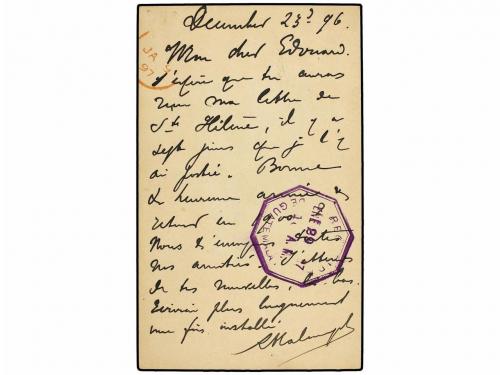 December 23d 96
Mon cher Edouard.
J'espère que tu auras
reçu ma lettre de
Ste Hélène, il y a
sept jours que je l'y
ai postée. Bonne
& heureuse année &
retour en
Nous t'envoyons
nos amitiés. J'attends
de tes nouvelles là-bas.
Ecrirai plus longuement
une fois installé.
JA
97
ENE 89
DE GUATEMALA